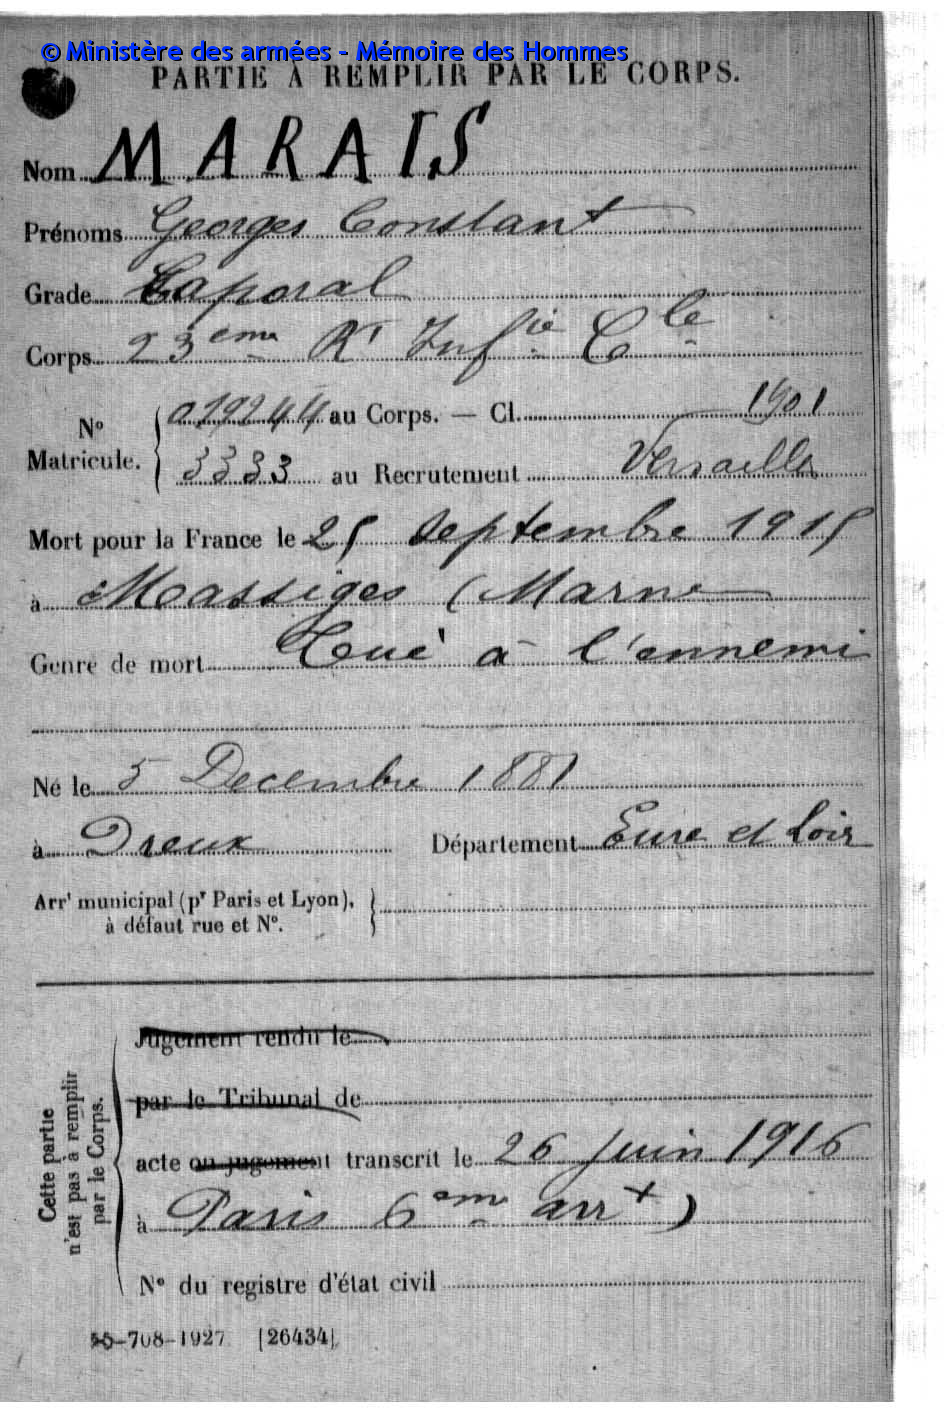 © Ministère des armées - Mémoire des Hommes
PARTIE À REMPLIR PAR LE CORPS.
Nom MARAIS
Prénoms Georges Constant
Grade Caporal
Corps 23eme Rt Infie Cle
No Matricule. 019244 au Corps. — Cl. 1901
3333 au Recrutement Versailles
Mort pour la France le 25 Septembre 1915
à Massiges (Marne
Genre de mort Tué à l'ennemi
Né le 5 Decembre 1881
à Dreux Département Eure et Loir
Arrt municipal (pr Paris et Lyon),
à défaut rue et No.
Cette partie
n'est pas à remplir
par le Corps.
Jugement rendu le
par le Tribunal de
acte ou jugement transcrit le 26 Juin 1916
à Paris 6eme arrt)
No du registre d'état civil
-708-1927. [26434].